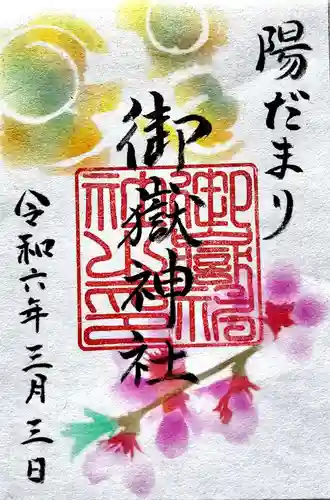 陽だまり
御嶽神社
令和六年三月三日